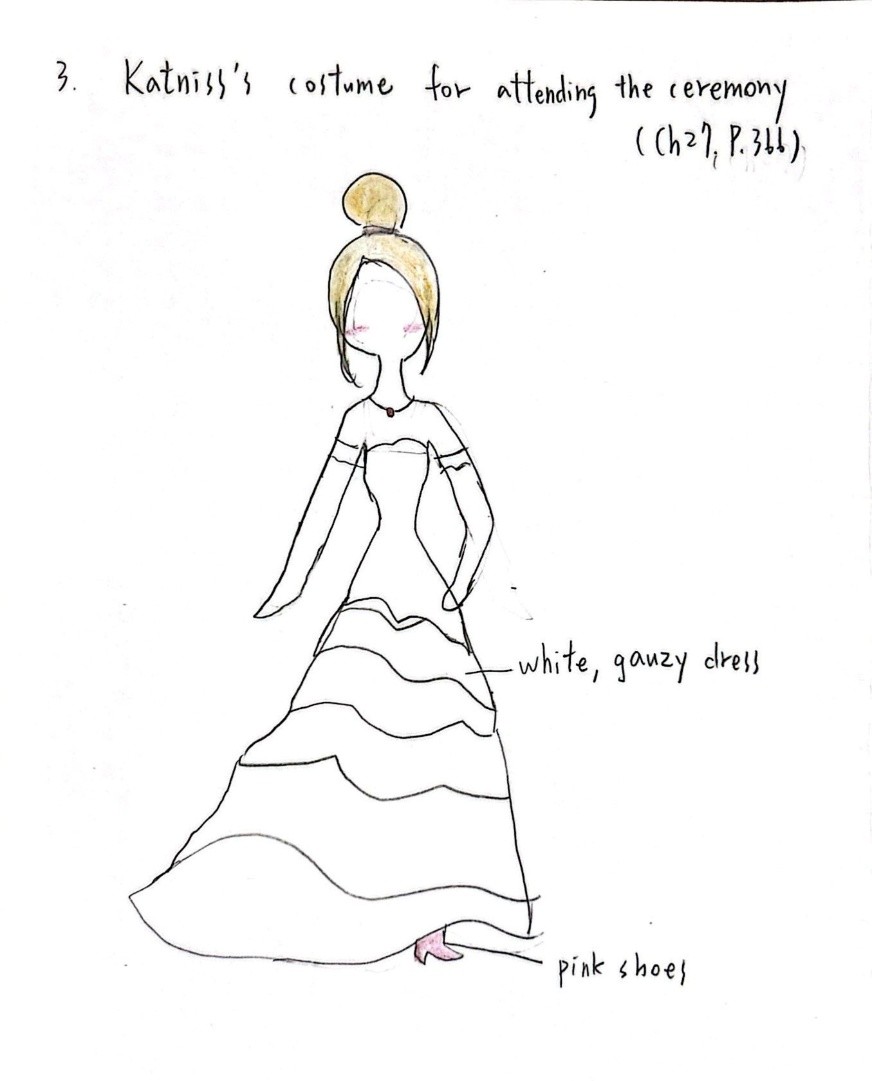 3. Katniss's costume for attending the ceremony
(Ch27, P.366)
white, gauzy dress
pink shoes